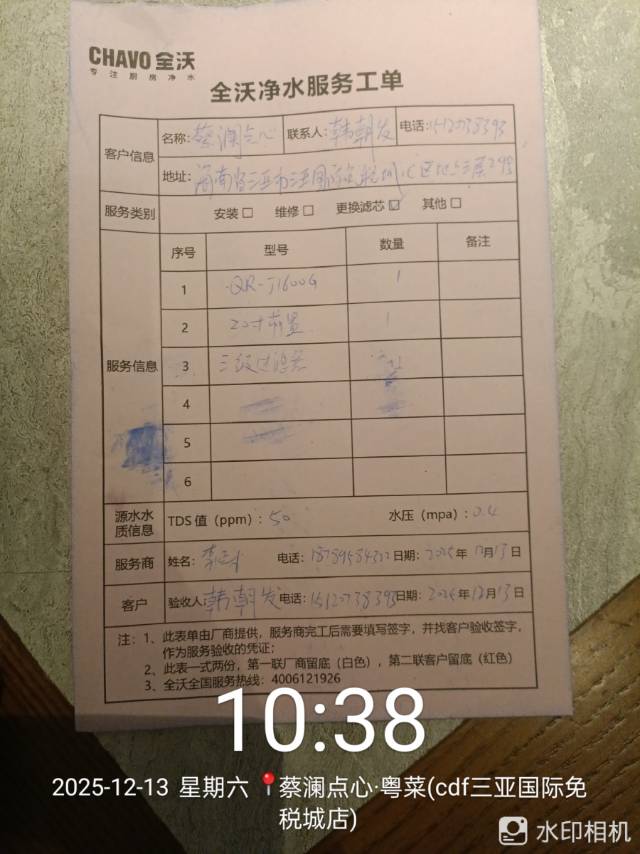 CHAVO 全沃
专注厨房净水
全沃净水服务工单
客户信息
名称: 蔡澜点心 联系人: 韩朝发 电话:
地址: 海南省三亚市
服务类别 安装 □ 维修 □ 更换滤芯 ☑ 其他 □
服务信息
序号 型号 数量 备注
1 QR-J1600G 1
2 20寸前置 1
3 三级过滤
4
5
6
源水水质信息 TDS 值（ppm）: 50 水压（mpa）: 0.4
服务商 姓名: 电话: 日期: 年 12月13日
客户 验收人 韩朝发 电话: 15120738393 日期: 年12月13日
注: 1、此表单由厂商提供，服务商完工后需要填写签字，并找客户验收签字，
作为服务验收的凭证;
2、此表一式两份，第一联厂商留底（白色），第二联客户留底（红色）
3、全沃全国服务热线: 4006121926
10:38
2025-12-13 星期六 蔡澜点心·粤菜(cdf三亚国际免
税城店)
水印相机